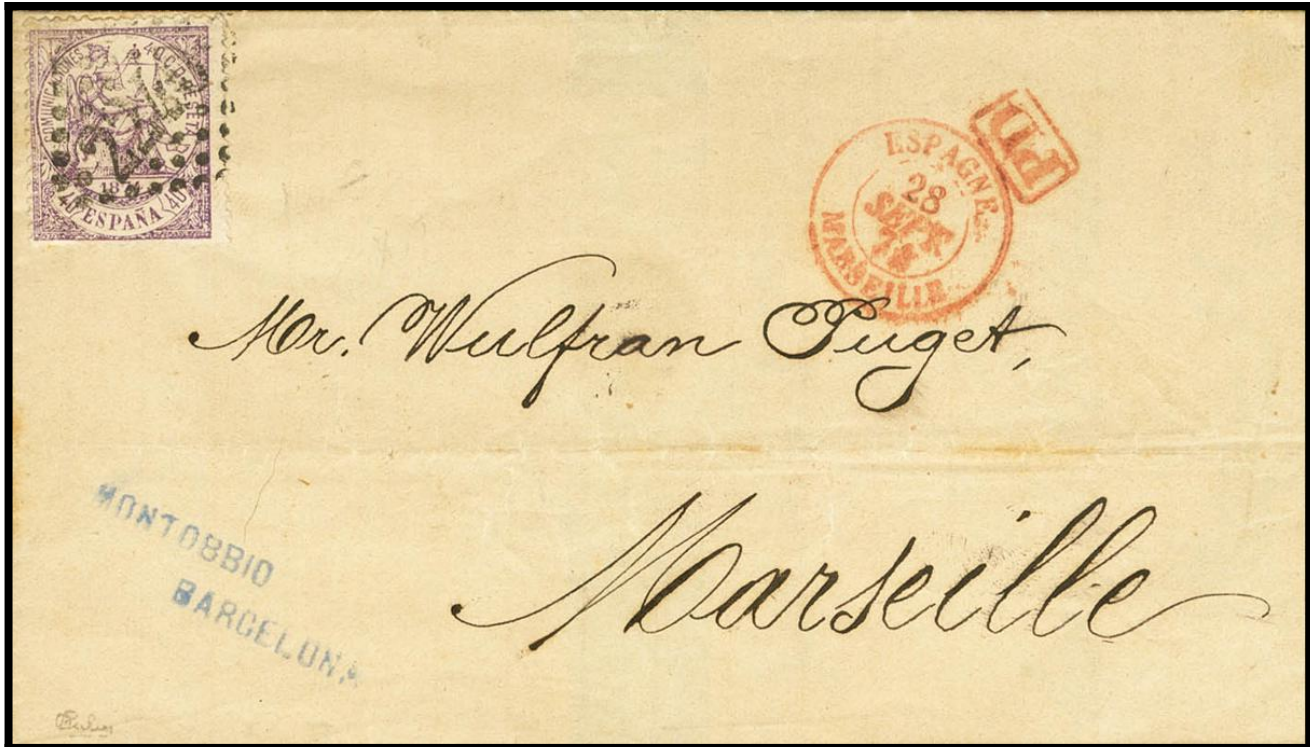 COMUNICACIONES 40 C. DE PESETA
224
18
40 ESPAÑA 40
PD
ESPAGNE
28
SEPT
74
MARSEILLE
Mr. Wulfran Puget,
Marseille
MONTOBBIO
BARCELONA